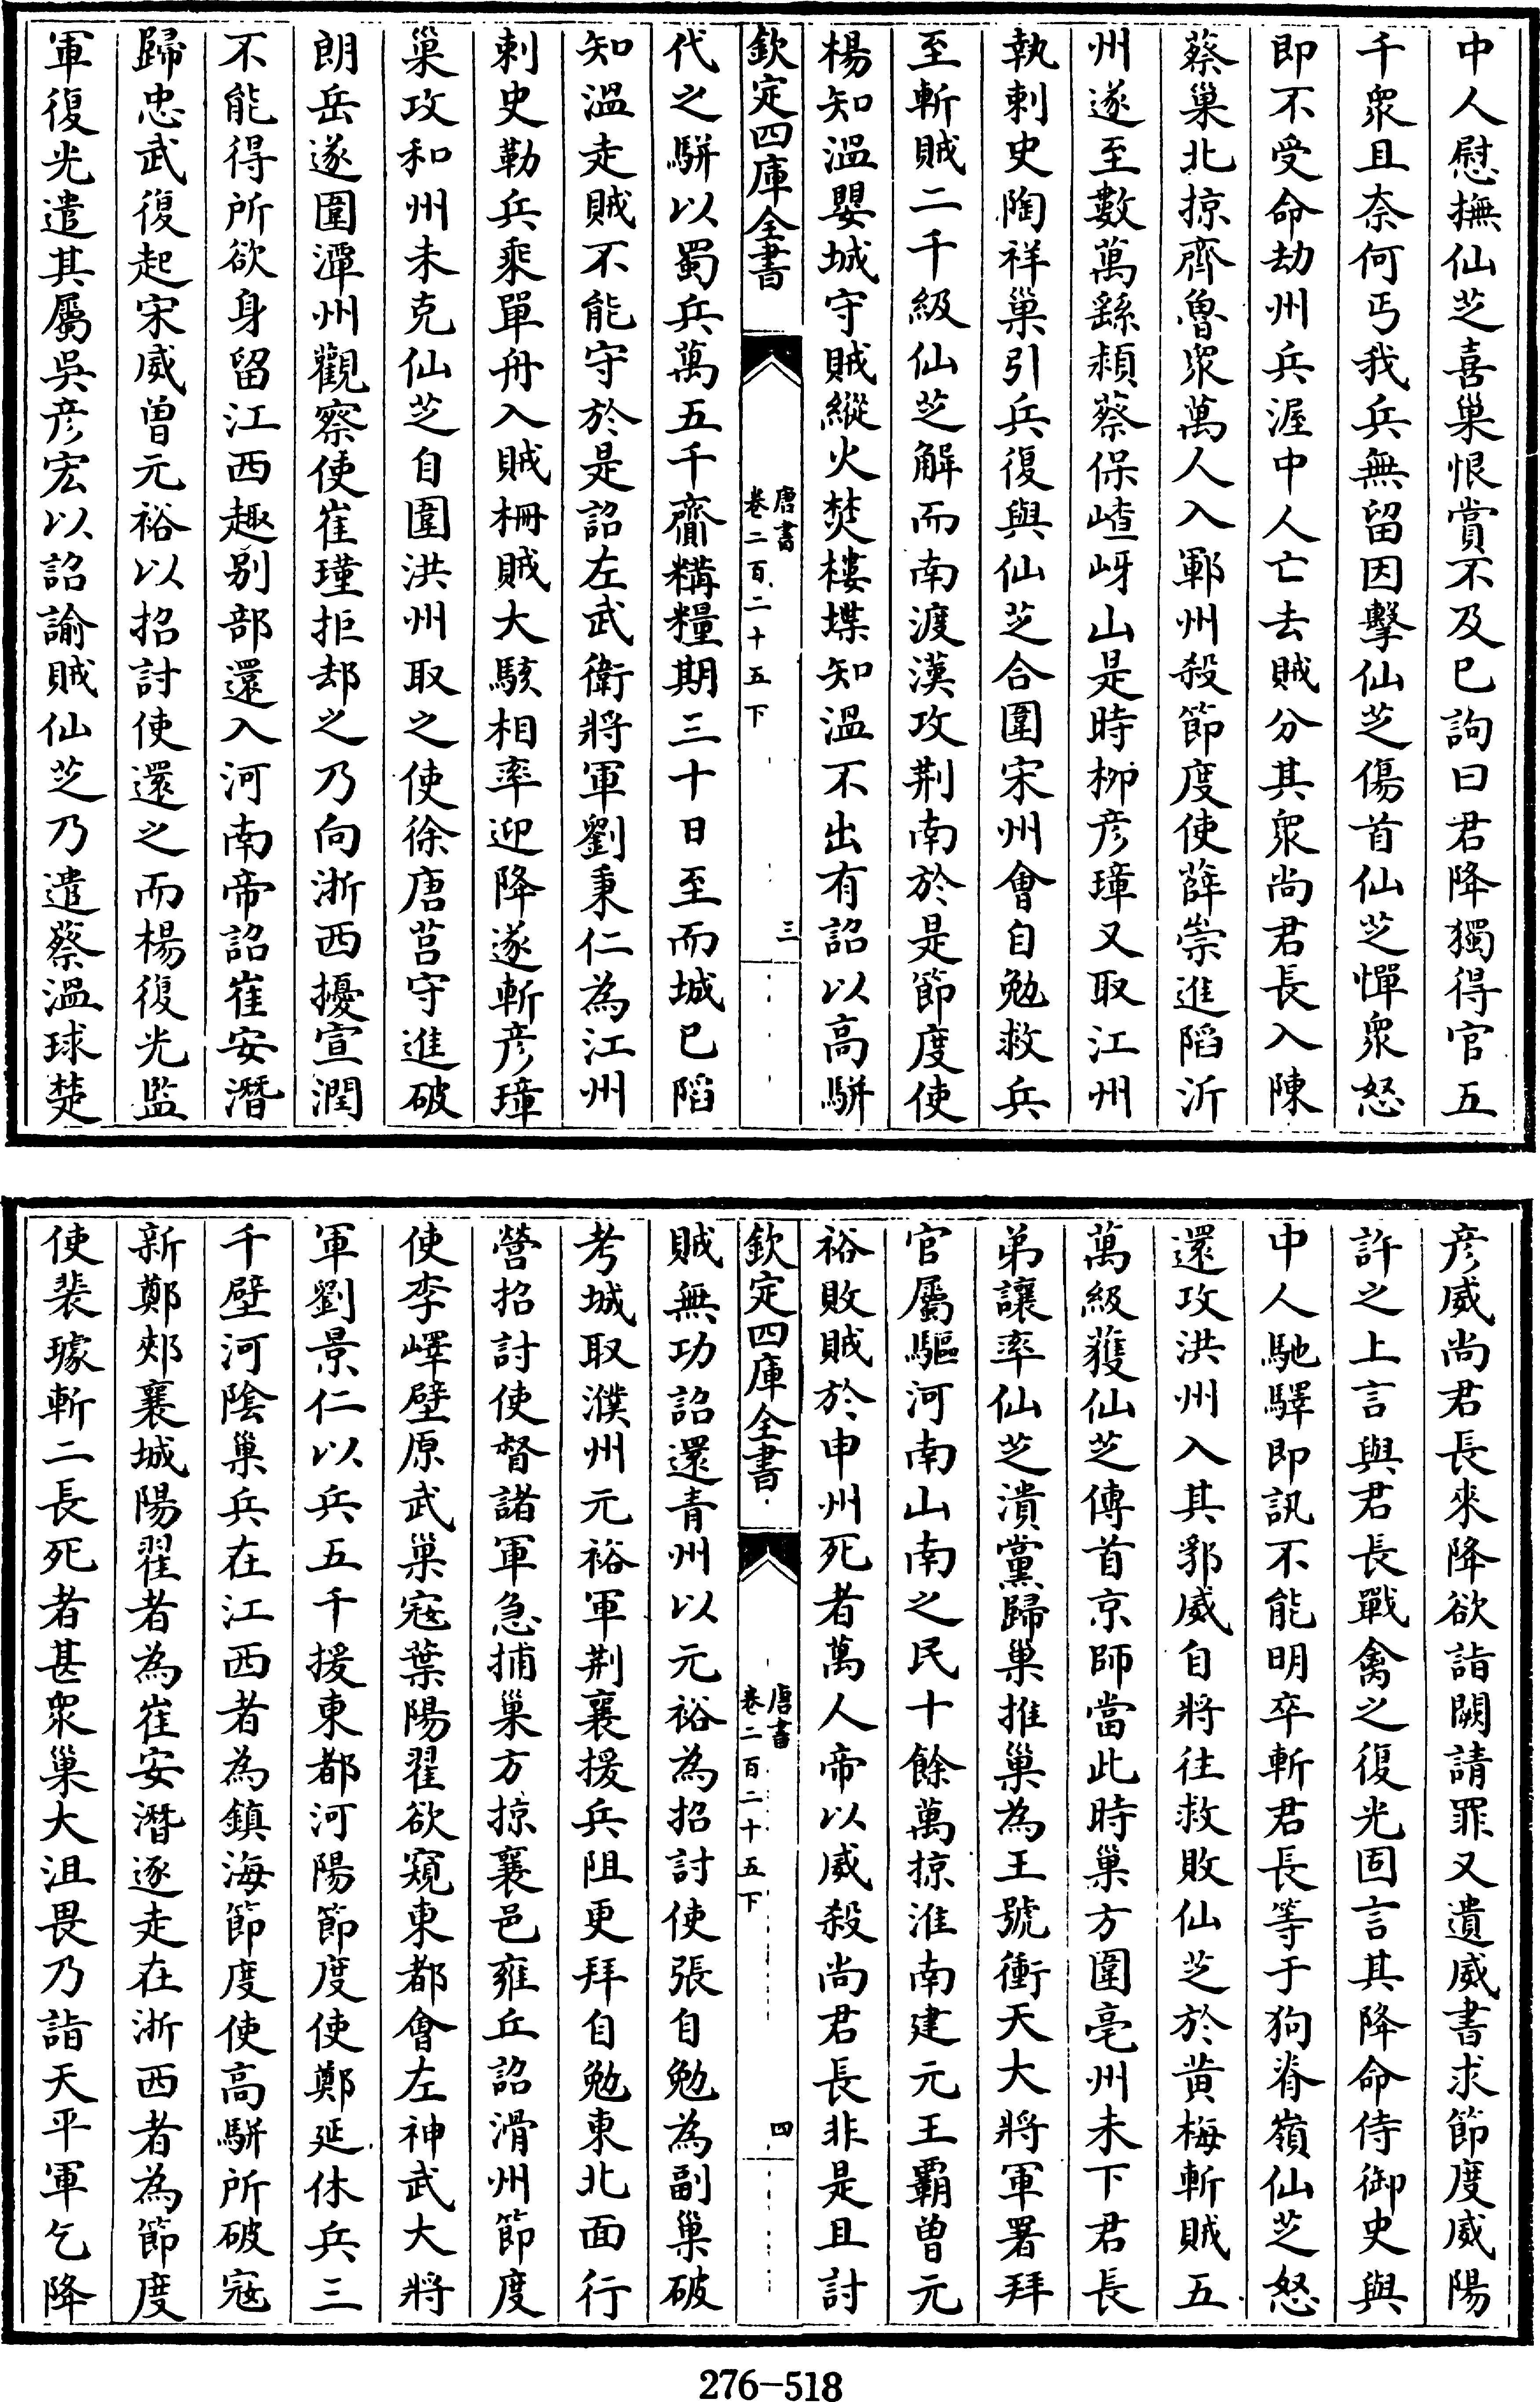 中人慰撫仙芝喜巢恨賞不及已詢曰君降獨得官五
千衆且奈何丐我兵無留因擊仙芝傷首仙芝憚衆怒
即不受命劫州兵渥中人亡去賊分其衆尚君長入陳
蔡巢北掠齊魯衆萬人入鄆州殺節度使薛崇進陷沂
州遂至數萬繇潁蔡保嵖岈山是時柳彥璋又取江州
執刺史陶祥巢引兵復與仙芝合圍宋州會自勉救兵
至斬賊二千級仙芝解而南渡漢攻荆南於是節度使
楊知溫嬰城守賊縱火焚樓堞知溫不出有詔以高駢
欽定四庫全書
唐書
卷二百二十五下
三
代之駢以蜀兵萬五千齎糒糧期三十日至而城已陷
知溫走賊不能守於是詔左武衛將軍劉秉仁為江州
刺史勒兵乘單舟入賊柵賊大駭相率迎降遂斬彥璋
巢攻和州未克仙芝自圍洪州取之使徐唐莒守進破
朗岳遂圍潭州觀察使崔瑾拒却之乃向浙西擾宣潤
不能得所欲身留江西趣别部還入河南帝詔崔安潛
歸忠武復起宋威曾元裕以招討使還之而楊復光監
軍復光遣其屬吳彥宏以詔諭賊仙芝乃遣蔡溫球楚
彥威尚君長來降欲詣闕請罪又遺威書求節度威陽
許之上言與君長戰禽之復光固言其降命侍御史與
中人馳驛即訊不能明卒斬君長等于狗脊嶺仙芝怒
還攻洪州入其郛威自將往救敗仙芝於黄梅斬賊五
萬級獲仙芝傳首京師當此時巢方圍亳州未下君長
弟讓率仙芝潰黨歸巢推巢為王號衝天大將軍署拜
官屬驅河南山南之民十餘萬掠淮南建元王霸曾元
裕敗賊於申州死者萬人帝以威殺尚君長非是且討
欽定四庫全書
唐書
卷二百二十五下
四
賊無功詔還青州以元裕為招討使張自勉為副巢破
考城取濮州元裕軍荆襄援兵阻更拜自勉東北面行
營招討使督諸軍急捕巢方掠襄邑雍丘詔滑州節度
使李嶧壁原武巢寇葉陽翟欲窺東都會左神武大將
軍劉景仁以兵五千援東都河陽節度使鄭延休兵三
千壁河陰巢兵在江西者為鎮海節度使高駢所破寇
新鄭郟襄城陽翟者為崔安潛逐走在浙西者為節度
使裴璩斬二長死者甚衆巢大沮畏乃詣天平軍乞降
276-518